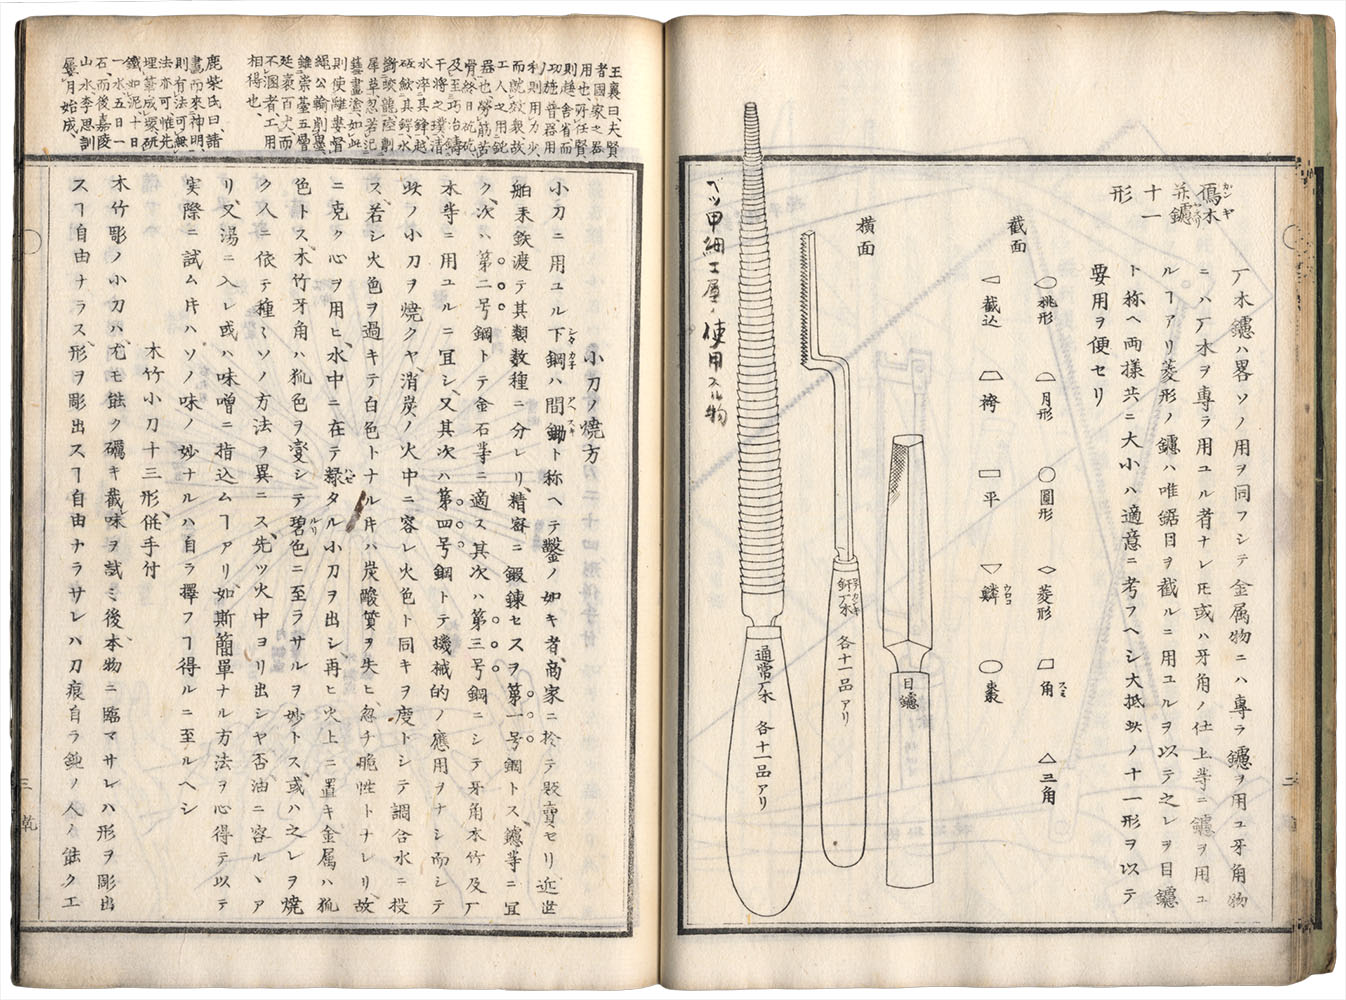 鴈木
カンギ
并鑢
ヤスリ
十一
形
𠂆木鑢ハ畧ソノ用ヲ同フシテ金属物ニハ專ラ鑢ヲ用ユ牙角物
ニハ𠂆木ヲ專ラ用ユル者ナレ𪜈或ハ牙角ノ仕上等ニ鑢ヲ用ユ
ルヿアリ菱形ノ鑢ハ唯鋸目ヲ截ルニ用ユルヲ以テ之レヲ目鑢
ト称ヘ両様共ニ大小ハ適意ニ考フヘシ大抵此ノ十一形ヲ以テ
要用ヲ便セリ
截面
桃形
月形
圓形
菱形
角
スミ
三角
截込
袴
平
鱗
ウロコ
棗
横面
目鑢
𠂆木 各十一品アリ
通常𠂆木 各十一品アリ
ベツ甲細工屋ノ使用スル物
王襄曰、夫賢
者國家之器
用也、所任賢、
則趨舎省而
功施普、器用
利則用力少、
而就效衆、故
工人之用鈍
器也、勞筋苦
骨、終日矻矻、
及至巧冶鑄
干将之璞、清
水淬其鋒、越
砥歛其鍔、水
斷蛟龍、陸剸
犀革、忽若
畫塗、如此
則使離婁督
繩、公輸削墨、
雖崇臺五曽
延袤百丈、而
不溷者、工用
相得也、
鹿柴氏曰、諸
畫而來神明
則有法可無
法亦可、惟先
埋筆成塚、硯
鐵如泥、十日
一水、五日一
石、而後嘉陵
山水李思訓
屢月始成、
小刀ノ焼方
小刀ニ用ユル下鋼ハ間鋤ト称ヘテ鑿ノ如キ者、商家ニ於テ販賣セリ近世
舶来鉄渡テ其類数種ニ分レリ、精密ニ鍛錬セスヲ第一号鋼トス、鑢等ニ宜
ク、次ハ第二号鋼トテ金石等ニ適ス其次ハ第三号鋼ニシテ牙角木竹及𠂆
木等ニ用ユルニ宜シ、又其次ハ第四号鋼トテ機械的ノ應用ヲナシ而シテ
此ノ小刀ヲ焼クヤ、消炭ノ火中ニ容レ火色ト同キヲ度トシテ調合水ニ投
ス、若シ火色ヲ過キテ白色トナル片ハ炭酸質ヲ失ヒ、忽チ脆性トナレリ、故
ニ克ク心ヲ用ヒ、水中ニ在テ緑タル小刀ヲ出シ、再ヒ火上ニ置キ金属ハ狐
色トス、木竹牙角ハ狐色ヲ變シテ碧色ニ至ラサルヲ妙トス、或ハ之レヲ焼
ク人ニ依テ種〻ソノ方法ヲ異ニス、先ツ火中ヨリ出シヤ否、油ニ容ルヽア
リ、又湯ニ入レ或ハ味噌ニ指込ムヿアリ、如斯簡單ナル方法ヲ心得テ以テ
実際ニ試ム片ハソノ味ノ妙ナルハ自ラ擇フヿ得ルニ至ルヘシ
木竹小刀十三形、併手付
木竹彫ノ小刀ハ、尤モ能ク礪キ截味ヲ試ミ後本物ニ臨マサレハ形ヲ彫出
スヿ自由ナラス、形ヲ彫出スヿ自由ナラサレハ刀痕自ラ鈍ノ人ノ能ク工
三
乾